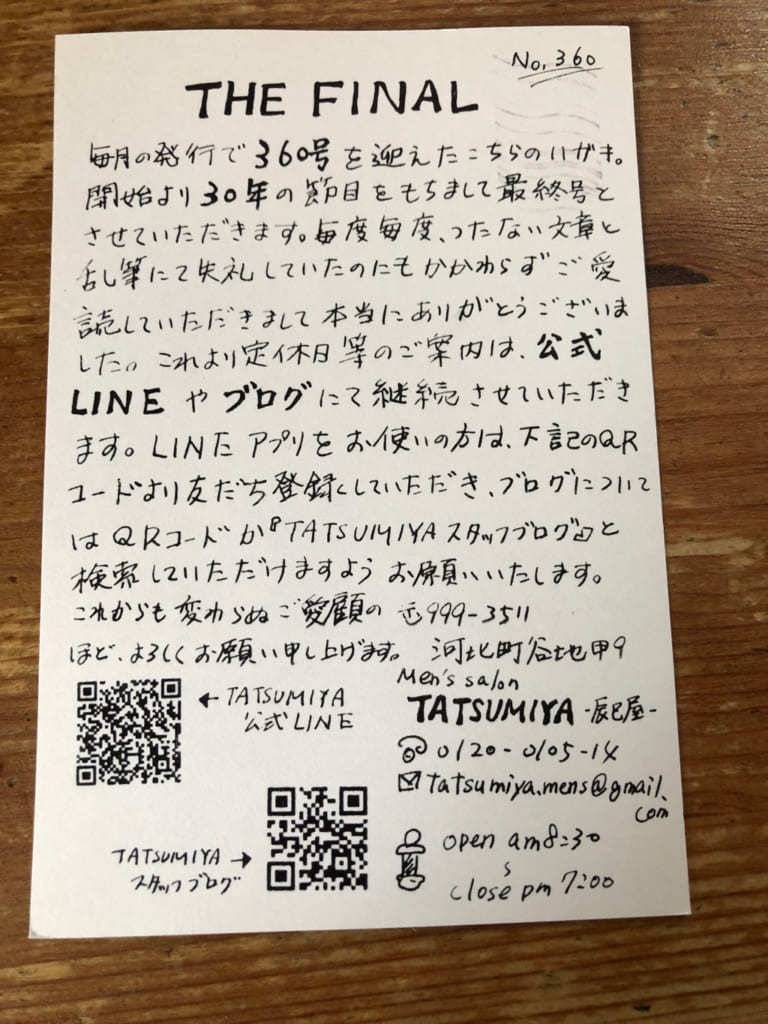 No.360
THE FINAL
毎月の発行で360号を迎えたこちらのハガキ。
開始より30年の節目をもちまして最終号と
させていただきます。毎度毎度、つたない文章と
乱筆にて失礼していたのにもかかわらずご愛
読していただきまして本当にありがとうございま
した。これより定休日等のご案内は、公式
LINEやブログにて継続させていただき
ます。LINEアプリをお使いの方は、下記のQR
コードより友だち登録していただき、ブログについて
はQRコードか『TATSUMIYAスタッフブログ』と
検索していただけますようお願いいたします。
これからも変わらぬご愛顧の
ほど、よろしくお願い申し上げます。
〒999-3511
河北町谷地甲9
Men's salon
TATSUMIYA -辰巳屋-
0120-0105-14
tatsumiya.mens@gmail.
com
open am8:30
~
close pm 7:00
←TATSUMIYA
公式LINE
TATSUMIYA →
スタッフブログ